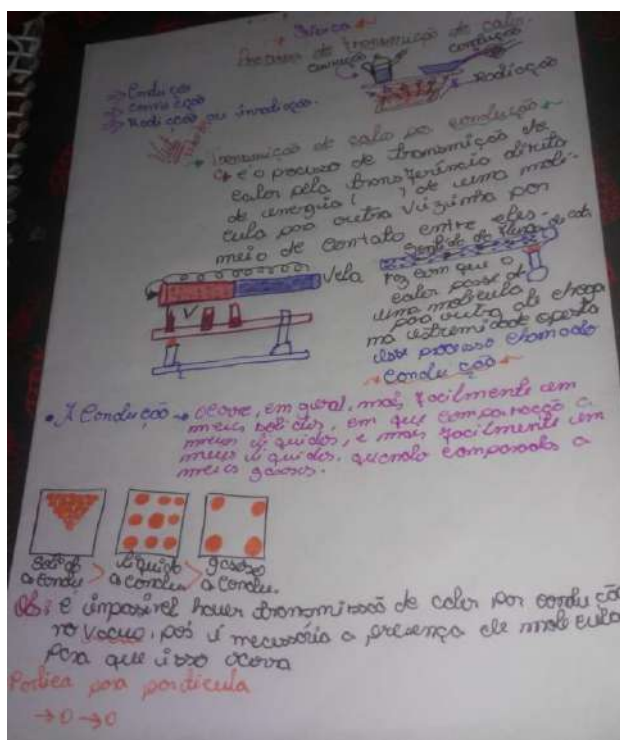 Processo de transmição de calor.
convecção
condução
Radiação
→ Condução
→ convecção
→ Radiação ou irradiação.
Transmição de calo por condução
é o processo de transmição de
calor pela transferência direta
de energia ( ) de uma molé-
cula por outra vizinha por
meio de contato entre elas.
Sentido do fluxo de calo
Vela
faz com que o
calor passe de
uma molécula
para outra até chega
na extremidade oposta
esse processo chamado
Condução
• A Condução → ocorre, em geral, mais facilmente em
meus solidos, em que comparação a
meius líquidos, e mais facilmente em
meus líquidos, quando comparada a
meios gasosos.
Solido líquido gasoso
a condu > a condu > a condu.
Obs: é impossivel houer transmissão de calor por condução
no vacuo, pois é necessário a presença de molécula
para que isso ocorra
Partica para particula
→ O → O